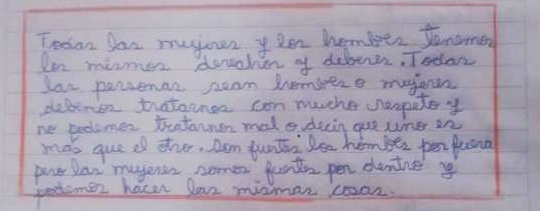 Todas las mujeres y los hombres tenemos
los mismos derechos y deberes. Todas
las personas sean hombres o mujeres
debemos tratarnos con mucho respeto y
no podemos tratarnos mal o decir que uno es
más que el otro. Son fuertes los hombes por fuera
pero las mujeres somos fuertes por dentro y
podemos hacer las mismas cosas.